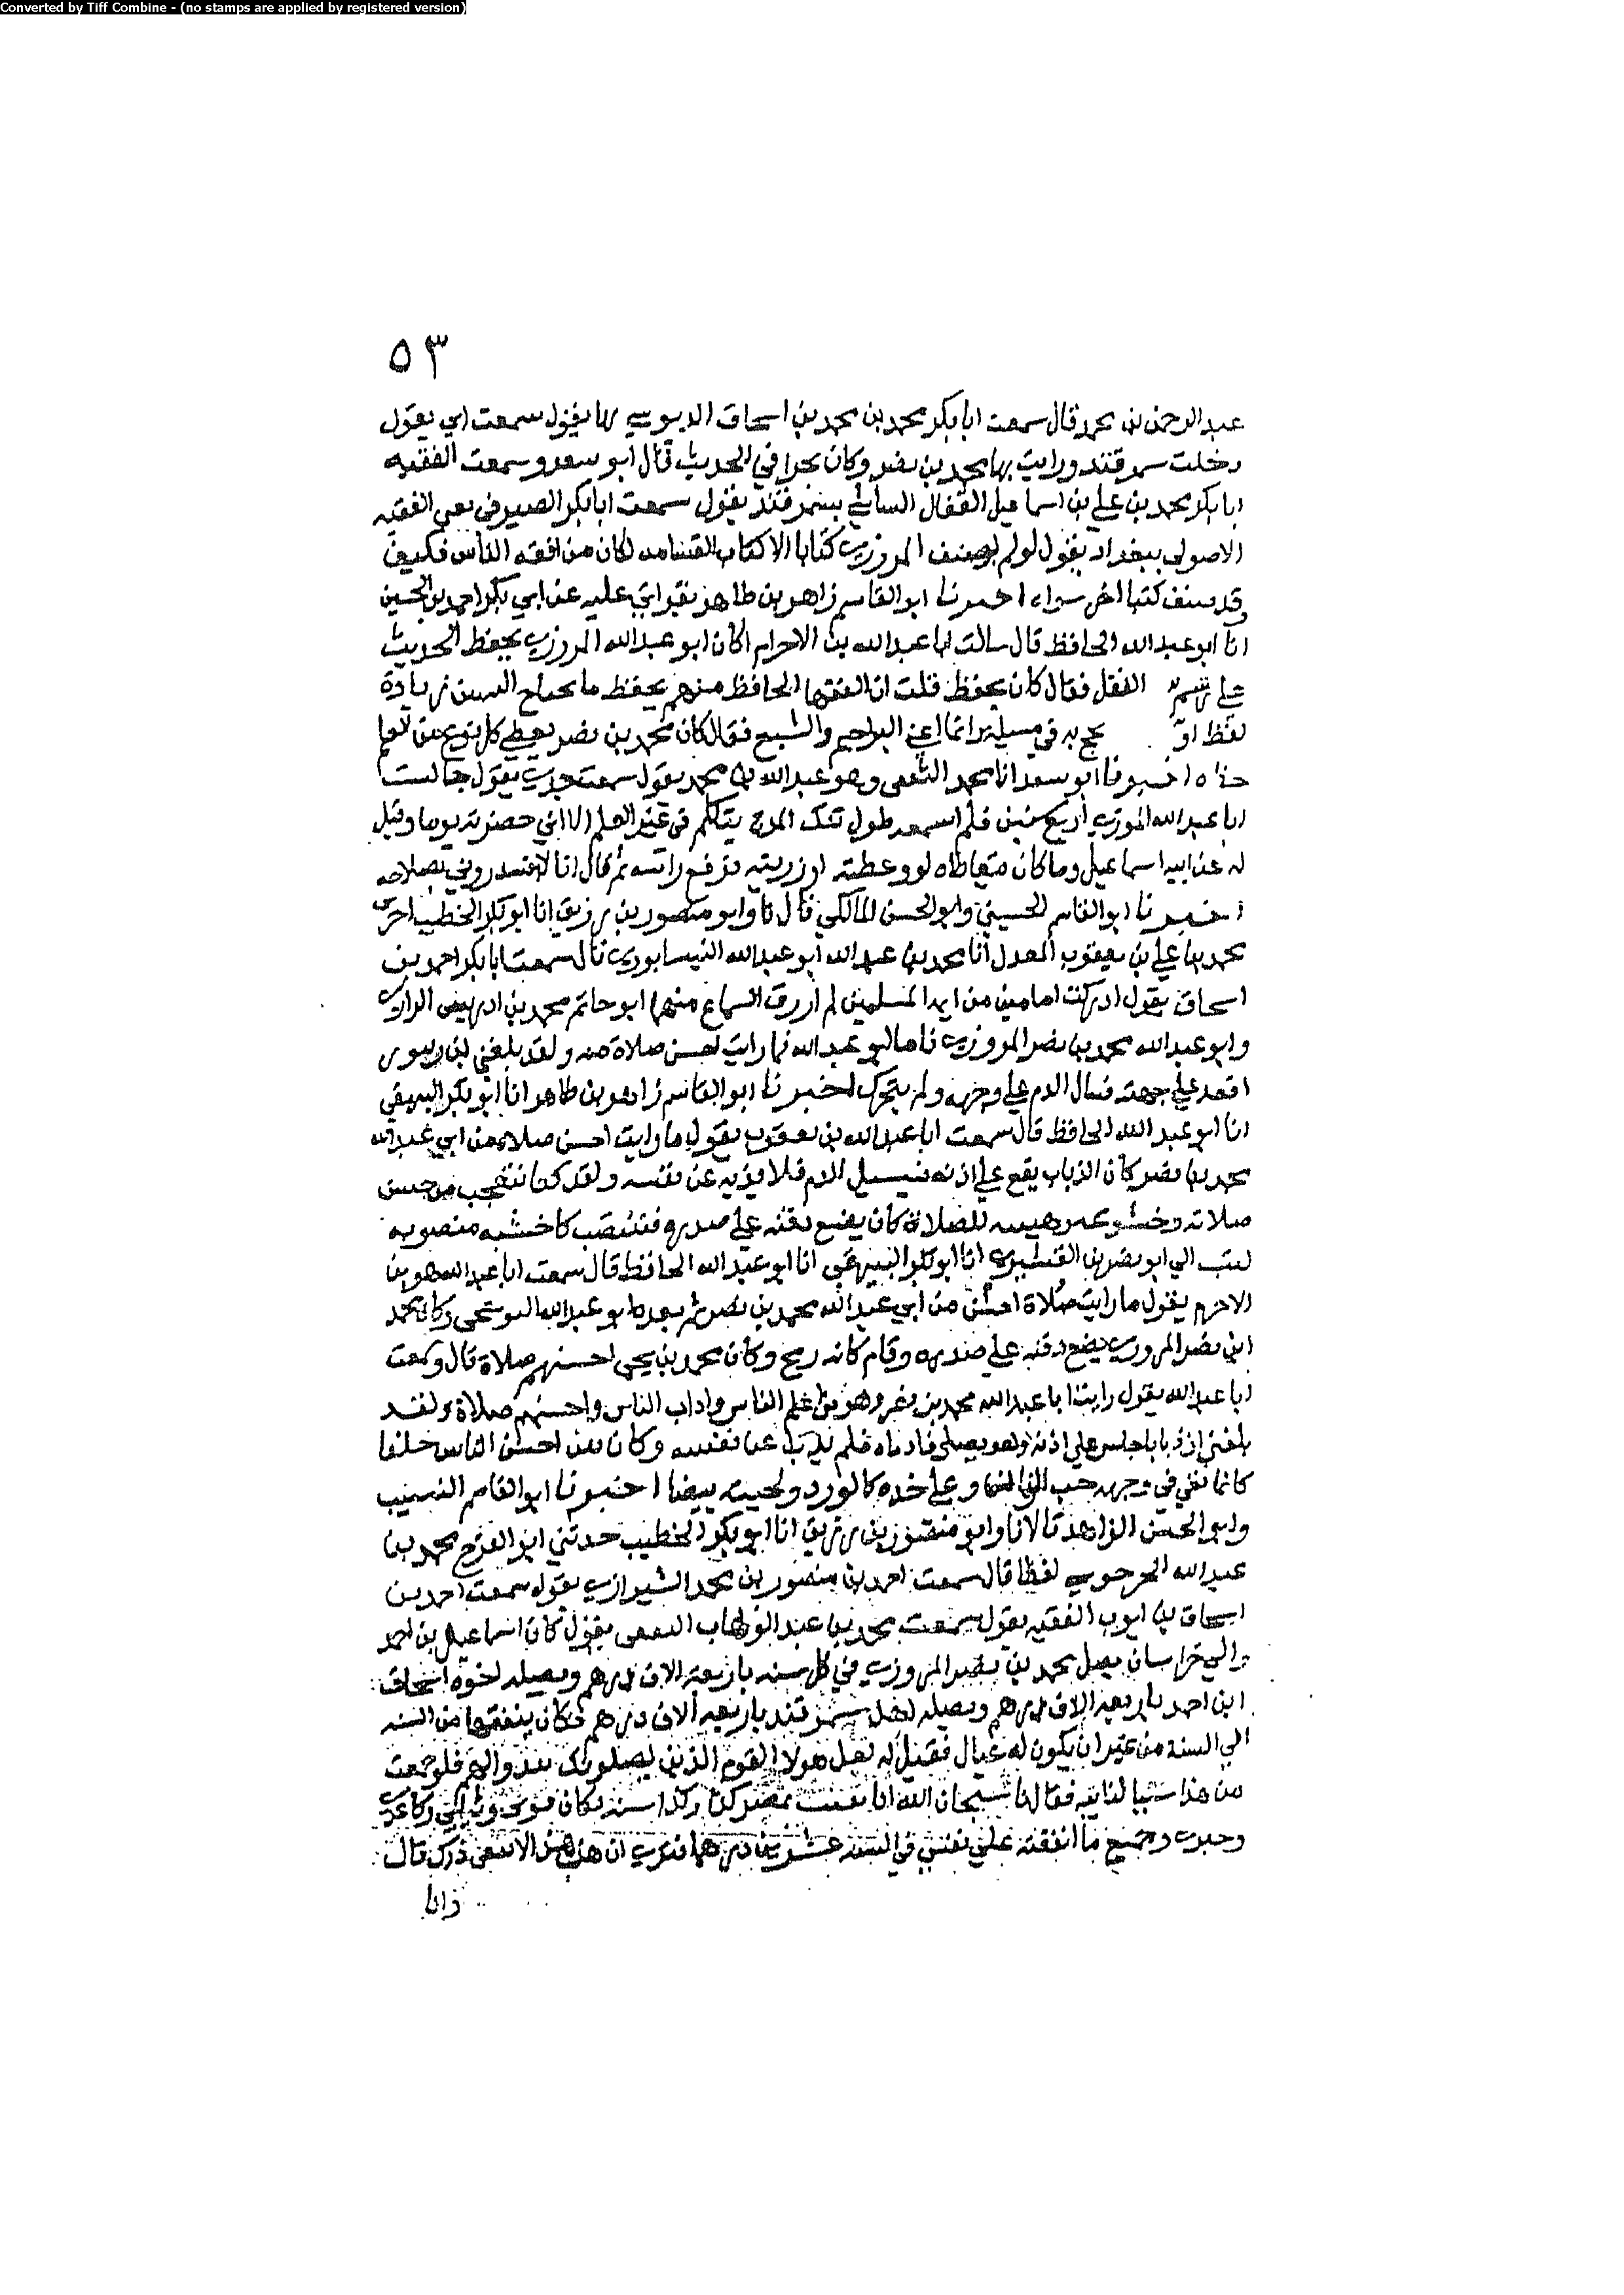 Converted by Tiff Combine - (no stamps are applied by registered version)
٥٣
عبد الرحمن بن محمد قال سمعت ابا بكر محمد بن محمد بن اسحاق الدبوسي بها يقول سمعت ابي يقول
دخلت سمرقند ورايت بها محمد بن نصر وكان بحرا في الحديث قال ابو سعد وسمعت الفقيه
ابا بكر محمد بن علي بن اسماعيل القفال الساشي بسمرقند يقول سمعت ابا بكر الصيرفي يعني الفقيه
الاصولي ببغداد يقول لو لم يصنف المروزي كتابا الا كتاب القسامه لكان من افقه الناس فكيف
وقد صنف كتبا اخر سواه اخبرنا ابو القاسم زاهر بن طاهر بقراتي عليه عن ابي بكر احمد بن الحسين
انا ابو عبد الله الحافظ قال سالت ابا عبد الله بن الاخرم اكان ابو عبد الله المروزي يحفظ الحديث
علي الفقل فقال كان يحفظ قلت ان الفقها الحافظ منهم يحفظ ما يحتاج زيادة
لفظ او يحتج به في مسيلة اعني التراجم والشيوخ فقال كان محمد بن نصر يعطي كل نوع من العلم
حقه اخبرنا ابو سعد انا محمد وهو عبد الله بن محمد يقول سمعت جدي يقول جالست
ابا عبد الله المروزي اربع سنين فلم اسمعه طول تلك المدة يتكلم في غير العلم الا اني حضرته يوما وقيل
له عن ابنه اسماعيل وما كان متعاطاه لو وعظته او زريته فرفع راسه ثم قال انا لا افسد مروتي بصلاحه
اخبرنا ابو القاسم الحسيني وابو الحسن المالكي قال نا وابو منصور بن زريق انا ابو بكر الخطيب اخبرني
محمد بن علي بن يعقوب المعدل انا محمد بن عبد الله ابو عبد الله النيسابوري قال سمعت ابا بكر احمد بن
اسحاق يقول ادركت امامين من ايمه المسلمين لم ارزق السماع منهما ابو حاتم محمد بن ادريس الرازي
وابو عبد الله محمد بن نصر المروزي فاما ابو عبد الله فما رايت احسن صلاة منه ولقد بلغني ان زنبورا
اقعد علي جبهته فسال الدم علي وجهه ولم يتحرك اخبرنا ابو القاسم زاهر بن طاهر انا ابو بكر البيهقي
انا ابو عبد الله الحافظ قال سمعت ابا عبد الله بن يعقوب يقول ما رايت احسن صلاة من ابي عبد الله
محمد بن نصر كان الذباب يقع علي اذنه فيسيل الدم فلا يذبه عن نفسه ولقد كنا نتعجب من حسن
صلاته وخشوعه وهيبته للصلاة كان يضع ذقنه علي صدره فتنتصب كاخشبه منصوبه
كتب الي ابو نصر بن القشيري انا ابو بكر البيهقي انا ابو عبد الله الحافظ قال سمعت ابا عبد الله هو بن
الاخرم يقول ما رايت صلاة احسن من ابي عبد الله محمد بن نصر ثم بعده ابو عبد الله البوشنجي وكان محمد
ابن نصر المروزي يضع ذقنه علي صدره وقام كانه رمح وكان محمد بن يحيى احسنهم صلاة قال وسمعت
ابا عبد الله يقول رايت ابا عبد الله محمد بن نصر وهو من اعلم الناس واداب الناس واحسنهم صلاة ولقد
بلغني ان ذبابا جلس علي اذنه وهو يصلي فادماه فلم يذب عن نفسه وكان من احسن الناس خلقا
كانما فقي في وجهه حب الرمان وعلي خده كالورد ولحيته بيضا اخبرنا ابو القاسم النسيب
وابو الحسن الزاهد قالا نا وابو منصور بن زريق انا ابو بكر الخطيب حدثني ابو الفرج محمد بن
عبيد الله الخرجوشي لفظا قال سمعت احمد بن منصور بن محمد الشيرازي يقول سمعت احمد بن
اسحاق بن ايوب الفقيه يقول سمعت محمد بن عبد الوهاب الثقفي يقول كان اسماعيل بن احمد
والي خراسان يصل محمد بن نصر المروزي في كل سنه باربعة الاف درهم ويصله اخوه اسحاق
ابن احمد باربعه الاف درهم ويصله اهل سمرقند باربعه الاف درهم فكان ينفقها من السنه
الي السنة من غير ان يكون له عيال فقيل له لعل هولا القوم الذين يصلونك يبدوا لهم فلو جمعت
من هذا شيا لنايبه فقال يا سبحان الله انا بقيت بمصر كذا وكذا سنه فكان قوتي وثيابي وكاغدي
وحبري وجميع ما انفقته علي نفسي في السنه عشرين درهما فترى ان ذهب هذا لا يبقى ذاك قال
وانا